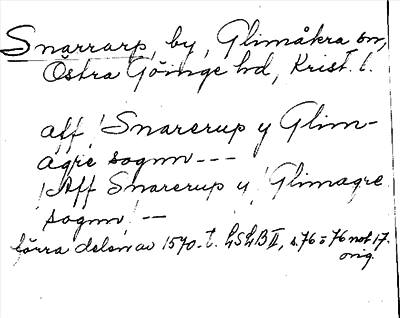 Snarrarp, by, Glimåkra sn,
Östra Göinge hd, Krist. l.
aff Snarerup y Glim-
agre sognn ---
Aff Snarerup y Glimagre
sognn --
förra delen av 1570-t. LSLB II, s. 76 = 76 not 17.
orig.